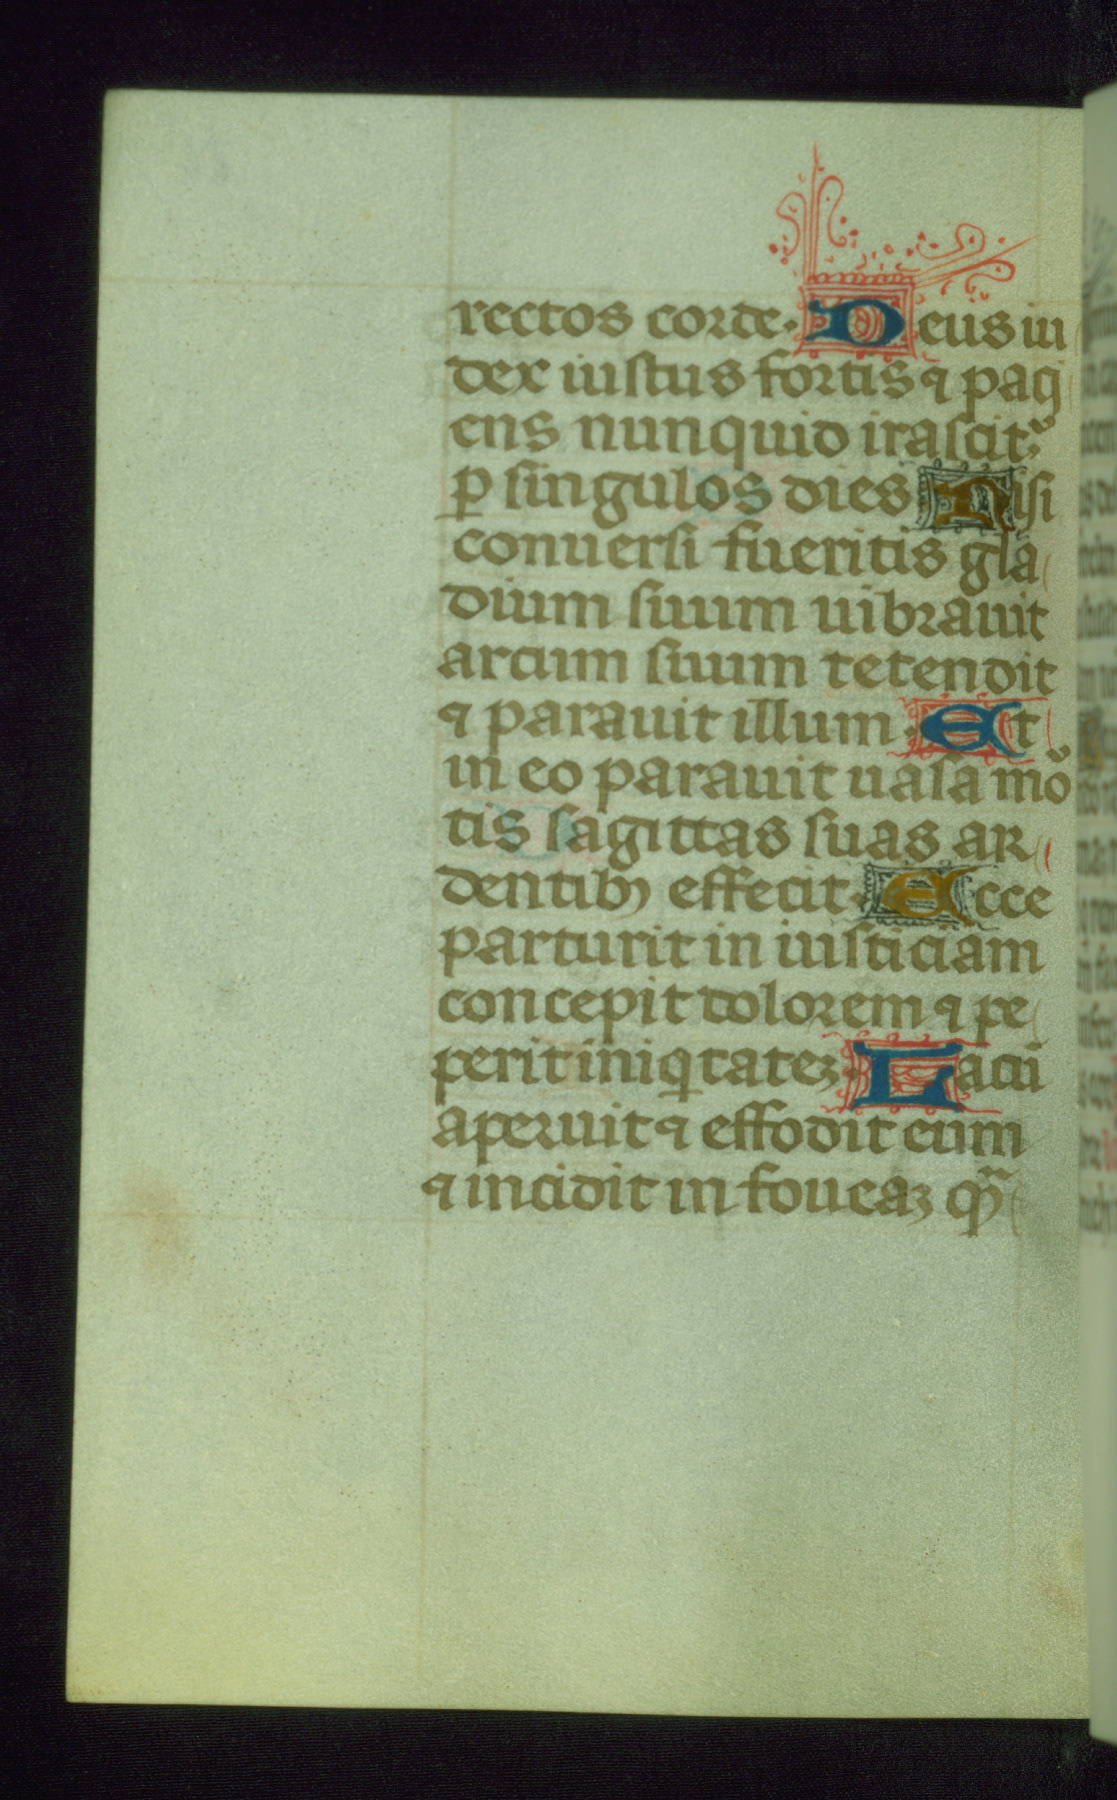 rectos corde. Deus iu
dex iustus fortis ⁊ paci
ens nunquid irascit᷑
ꝑ singulos dies Nisi
conuersi fueritis gla
dium suum uibrauit
arcum suum tetendit
⁊ parauit illum. Et
in eo parauit uasa mo᷑
tis sagittas suas ar
dentibꝫ effecit. Ecce
parturit in iusticiam
concepit dolorem ⁊ pe
perit iniqͥtateꝫ. Lacū
aperuit ⁊ effodit eum
⁊ incidit in foueaꝫ qᷓ